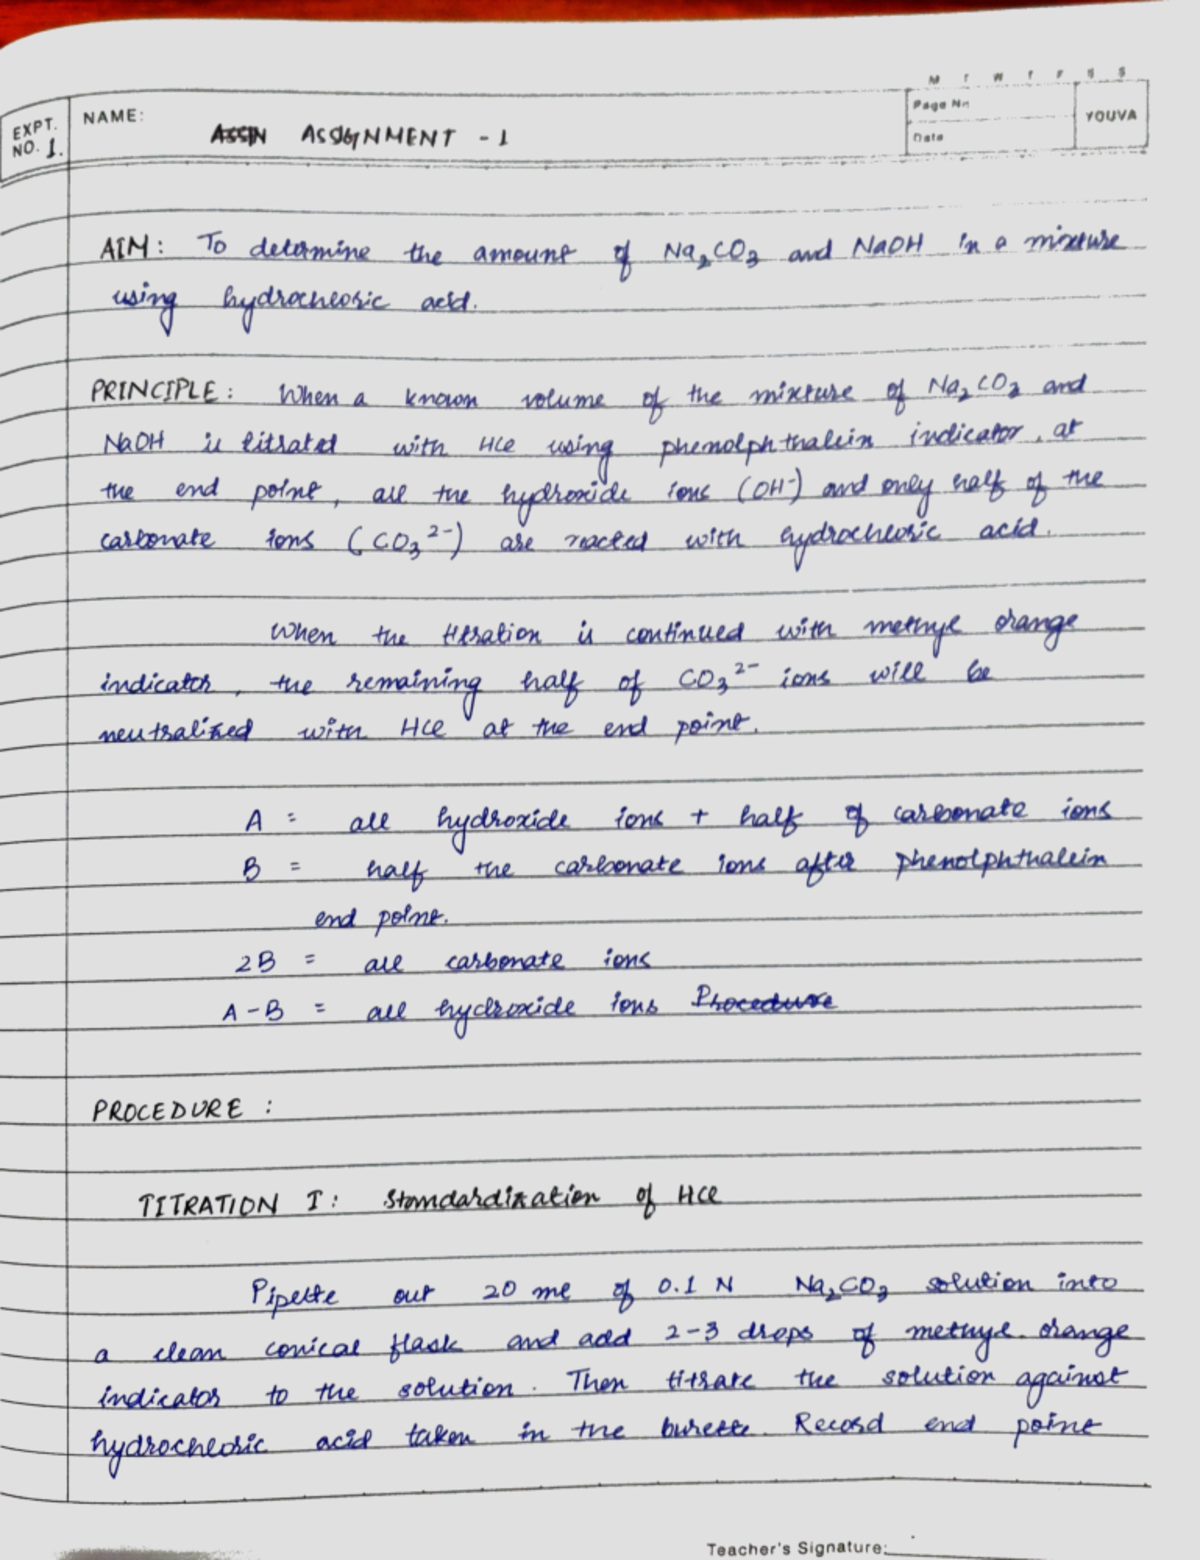 M T W T F S S
EXPT. NO. 1.
NAME: ASSIGNMENT - 1
Page No.
Date
YOUVA
AIM: To determine the amount of Na₂CO₃ and NaOH in a mixture
using hydrochloric acid.
PRINCIPLE: When a known volume of the mixture of Na₂CO₃ and
NaOH is titrated with HCl using phenolphthalein indicator, at
the end point, all the hydroxide ions (OH⁻) and only half of the
carbonate ions (CO₃²⁻) are reacted with hydrochloric acid.
When the titration is continued with methyl orange
indicator, the remaining half of CO₃²⁻ ions will be
neutralized with HCl at the end point.
A = all hydroxide ions + half of carbonate ions
B = half the carbonate ions after phenolphthalein
end point.
2B = all carbonate ions
A - B = all hydroxide ions Procedure
PROCEDURE :
TITRATION I: Standardization of HCl
Pipette out 20 ml of 0.1 N Na₂CO₃ solution into
a clean conical flask and add 2-3 drops of methyl orange
indicator to the solution. Then titrate the solution against
hydrochloric acid taken in the burette. Record end point
Teacher's Signature: